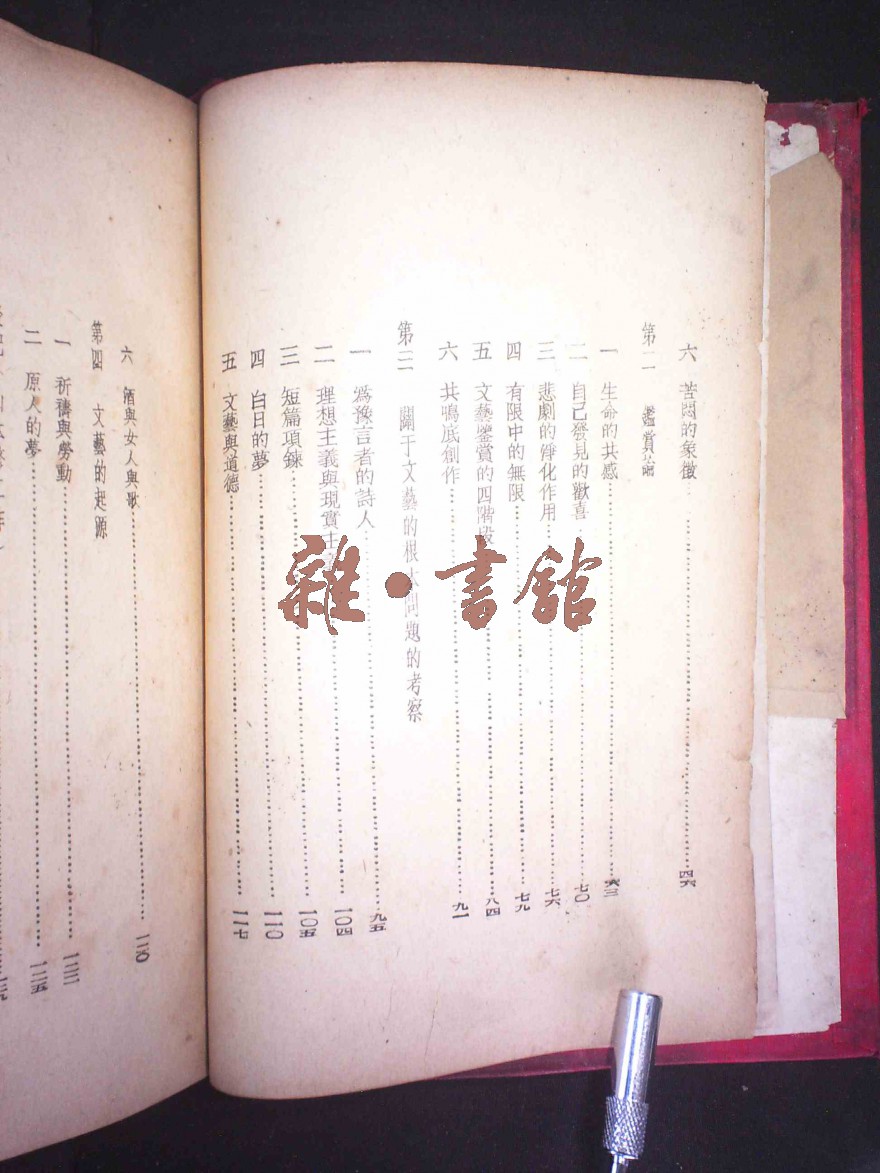 六 苦悶的象徵……四六
第二 鑑賞論
一 生命的共感……六三
二 自己發見的歡喜……七〇
三 悲劇的淨化作用……七六
四 有限中的無限……七九
五 文藝鑒賞的四階段……八四
六 共鳴底創作……九一
第三 關于文藝的根本問題的考察
一 爲豫言者的詩人……九五
二 理想主義與現實主義……一〇四
三 短篇項鍊……一〇五
四 白日的夢……一一〇
五 文藝與道德……一一七
六 酒與女人與歌……一二〇
第四 文藝的起源
一 祈禱與勞動……一二二
二 原人的夢……一二五
雜·書館